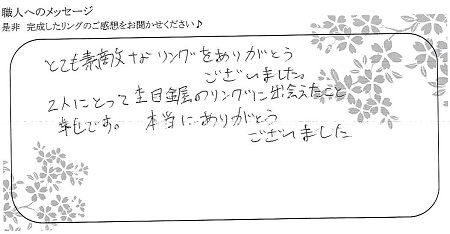 職人へのメッセージ
是非 完成したリングのご感想をお聞かせください♪
とても素敵なリングをありがとう
ございました。
2人にとって杢目金屋のリングに出会えたこと
幸せです。 本当にありがとう
ございました